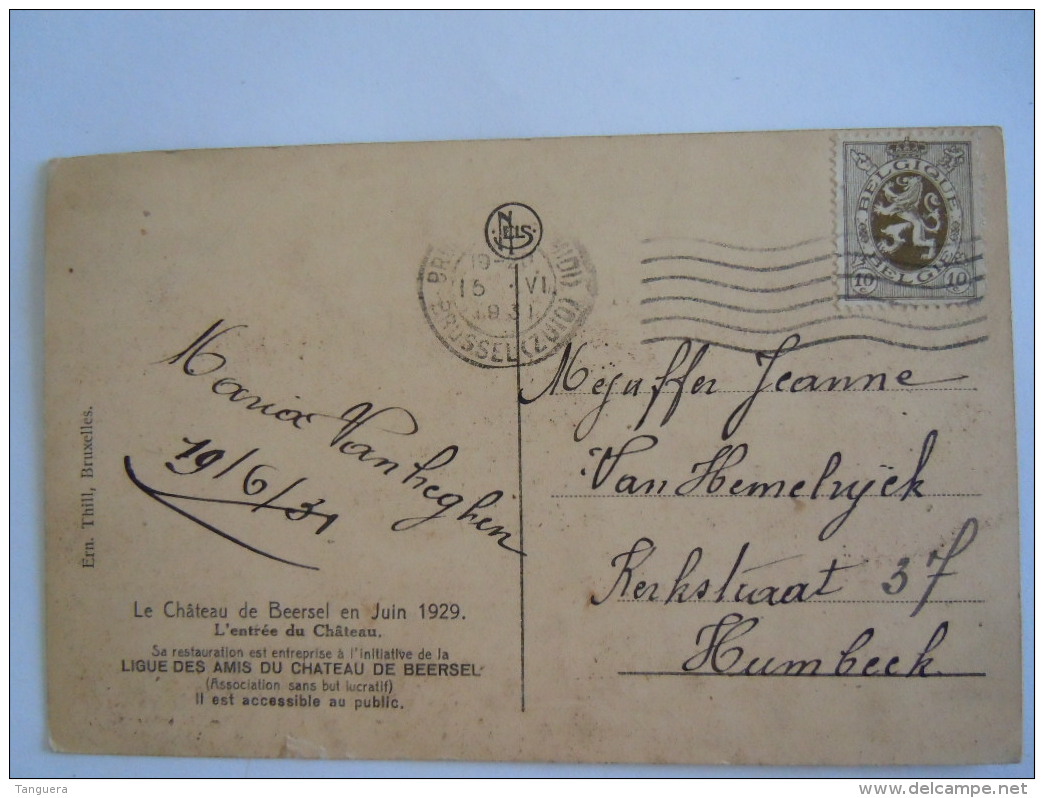 BELGIQUE
BELGIE
10 10
NELS
19-20
15 VI
1931
BRUSSEL (ZUID)
Ern. Thill, Bruxelles.
Maria Vanheghen
19/6/31
Mejuffer Jeanne
Van Hemelryck
Kerkstraat 37
Humbeek
Le Château de Beersel en Juin 1929.
L'entrée du Château.
Sa restauration est entreprise à l'initiative de la
LIGUE DES AMIS DU CHATEAU DE BEERSEL
(Association sans but lucratif)
Il est accessible au public.
Tanguera
delcampe.net